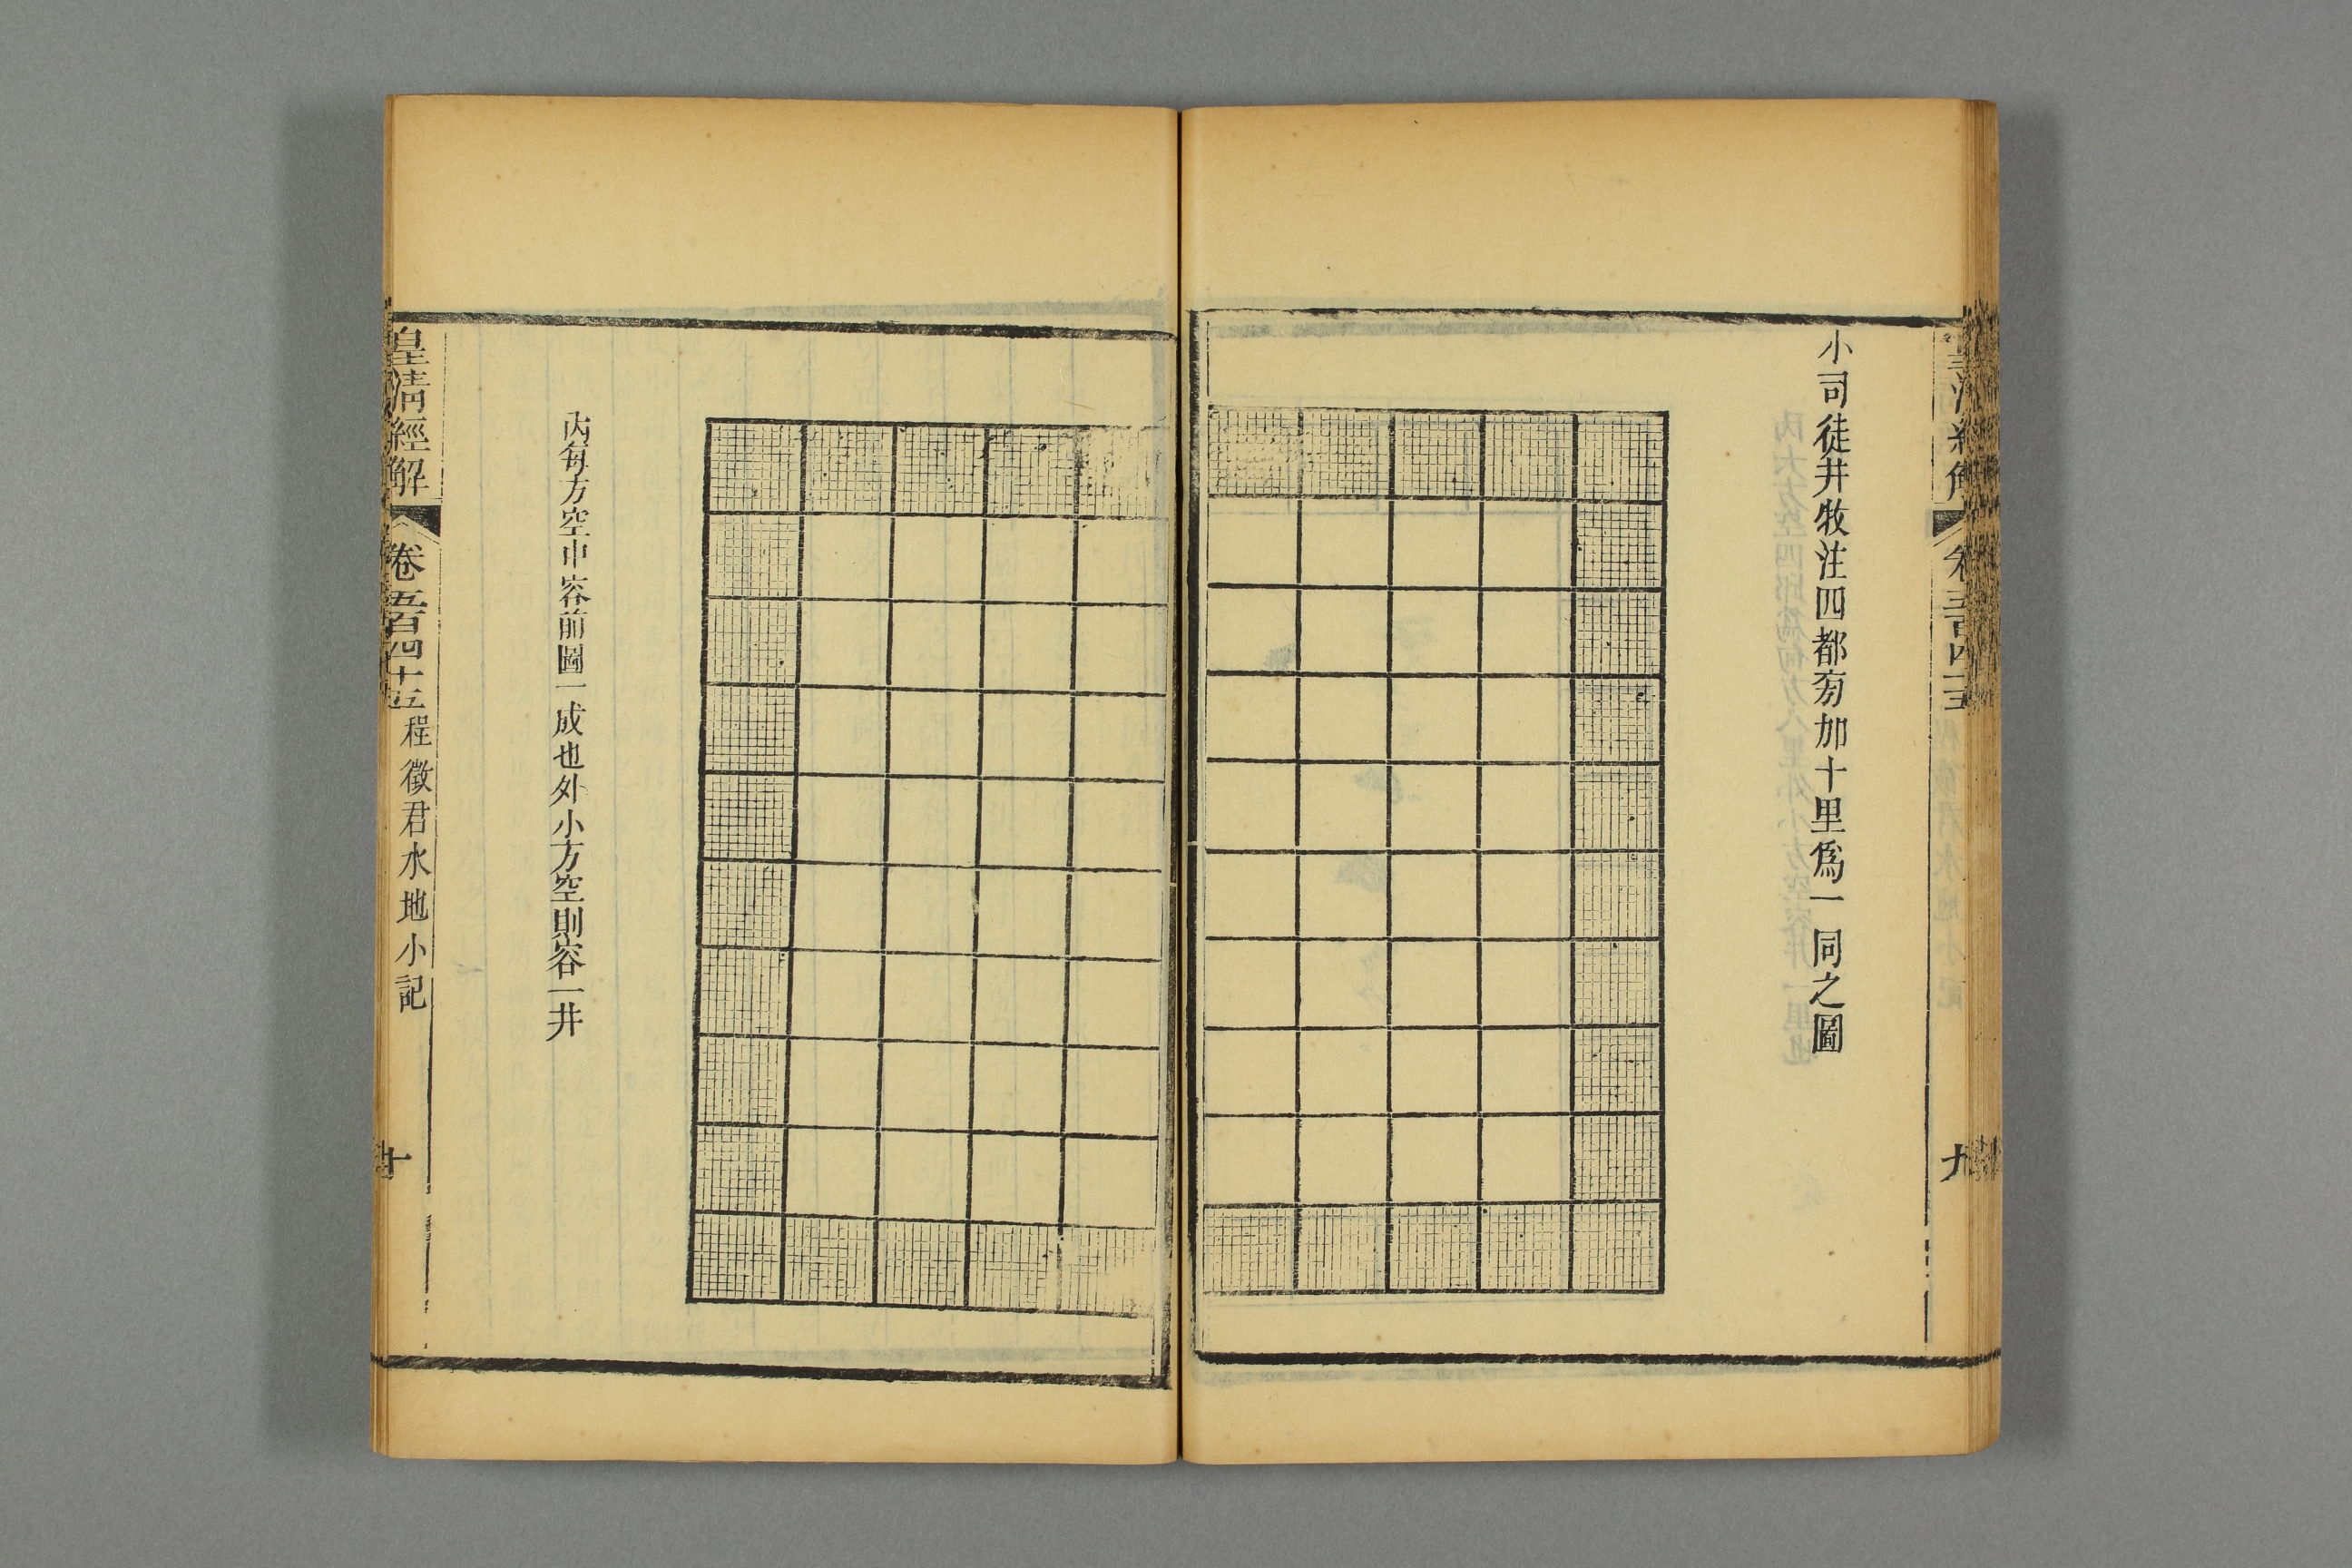 小司徒井牧注四都㫄加十里爲一同之圖
九
內每方空中容前圖一成也外小方空則容一井
皇清經解
卷五百四十五
程徵君水地小記
十